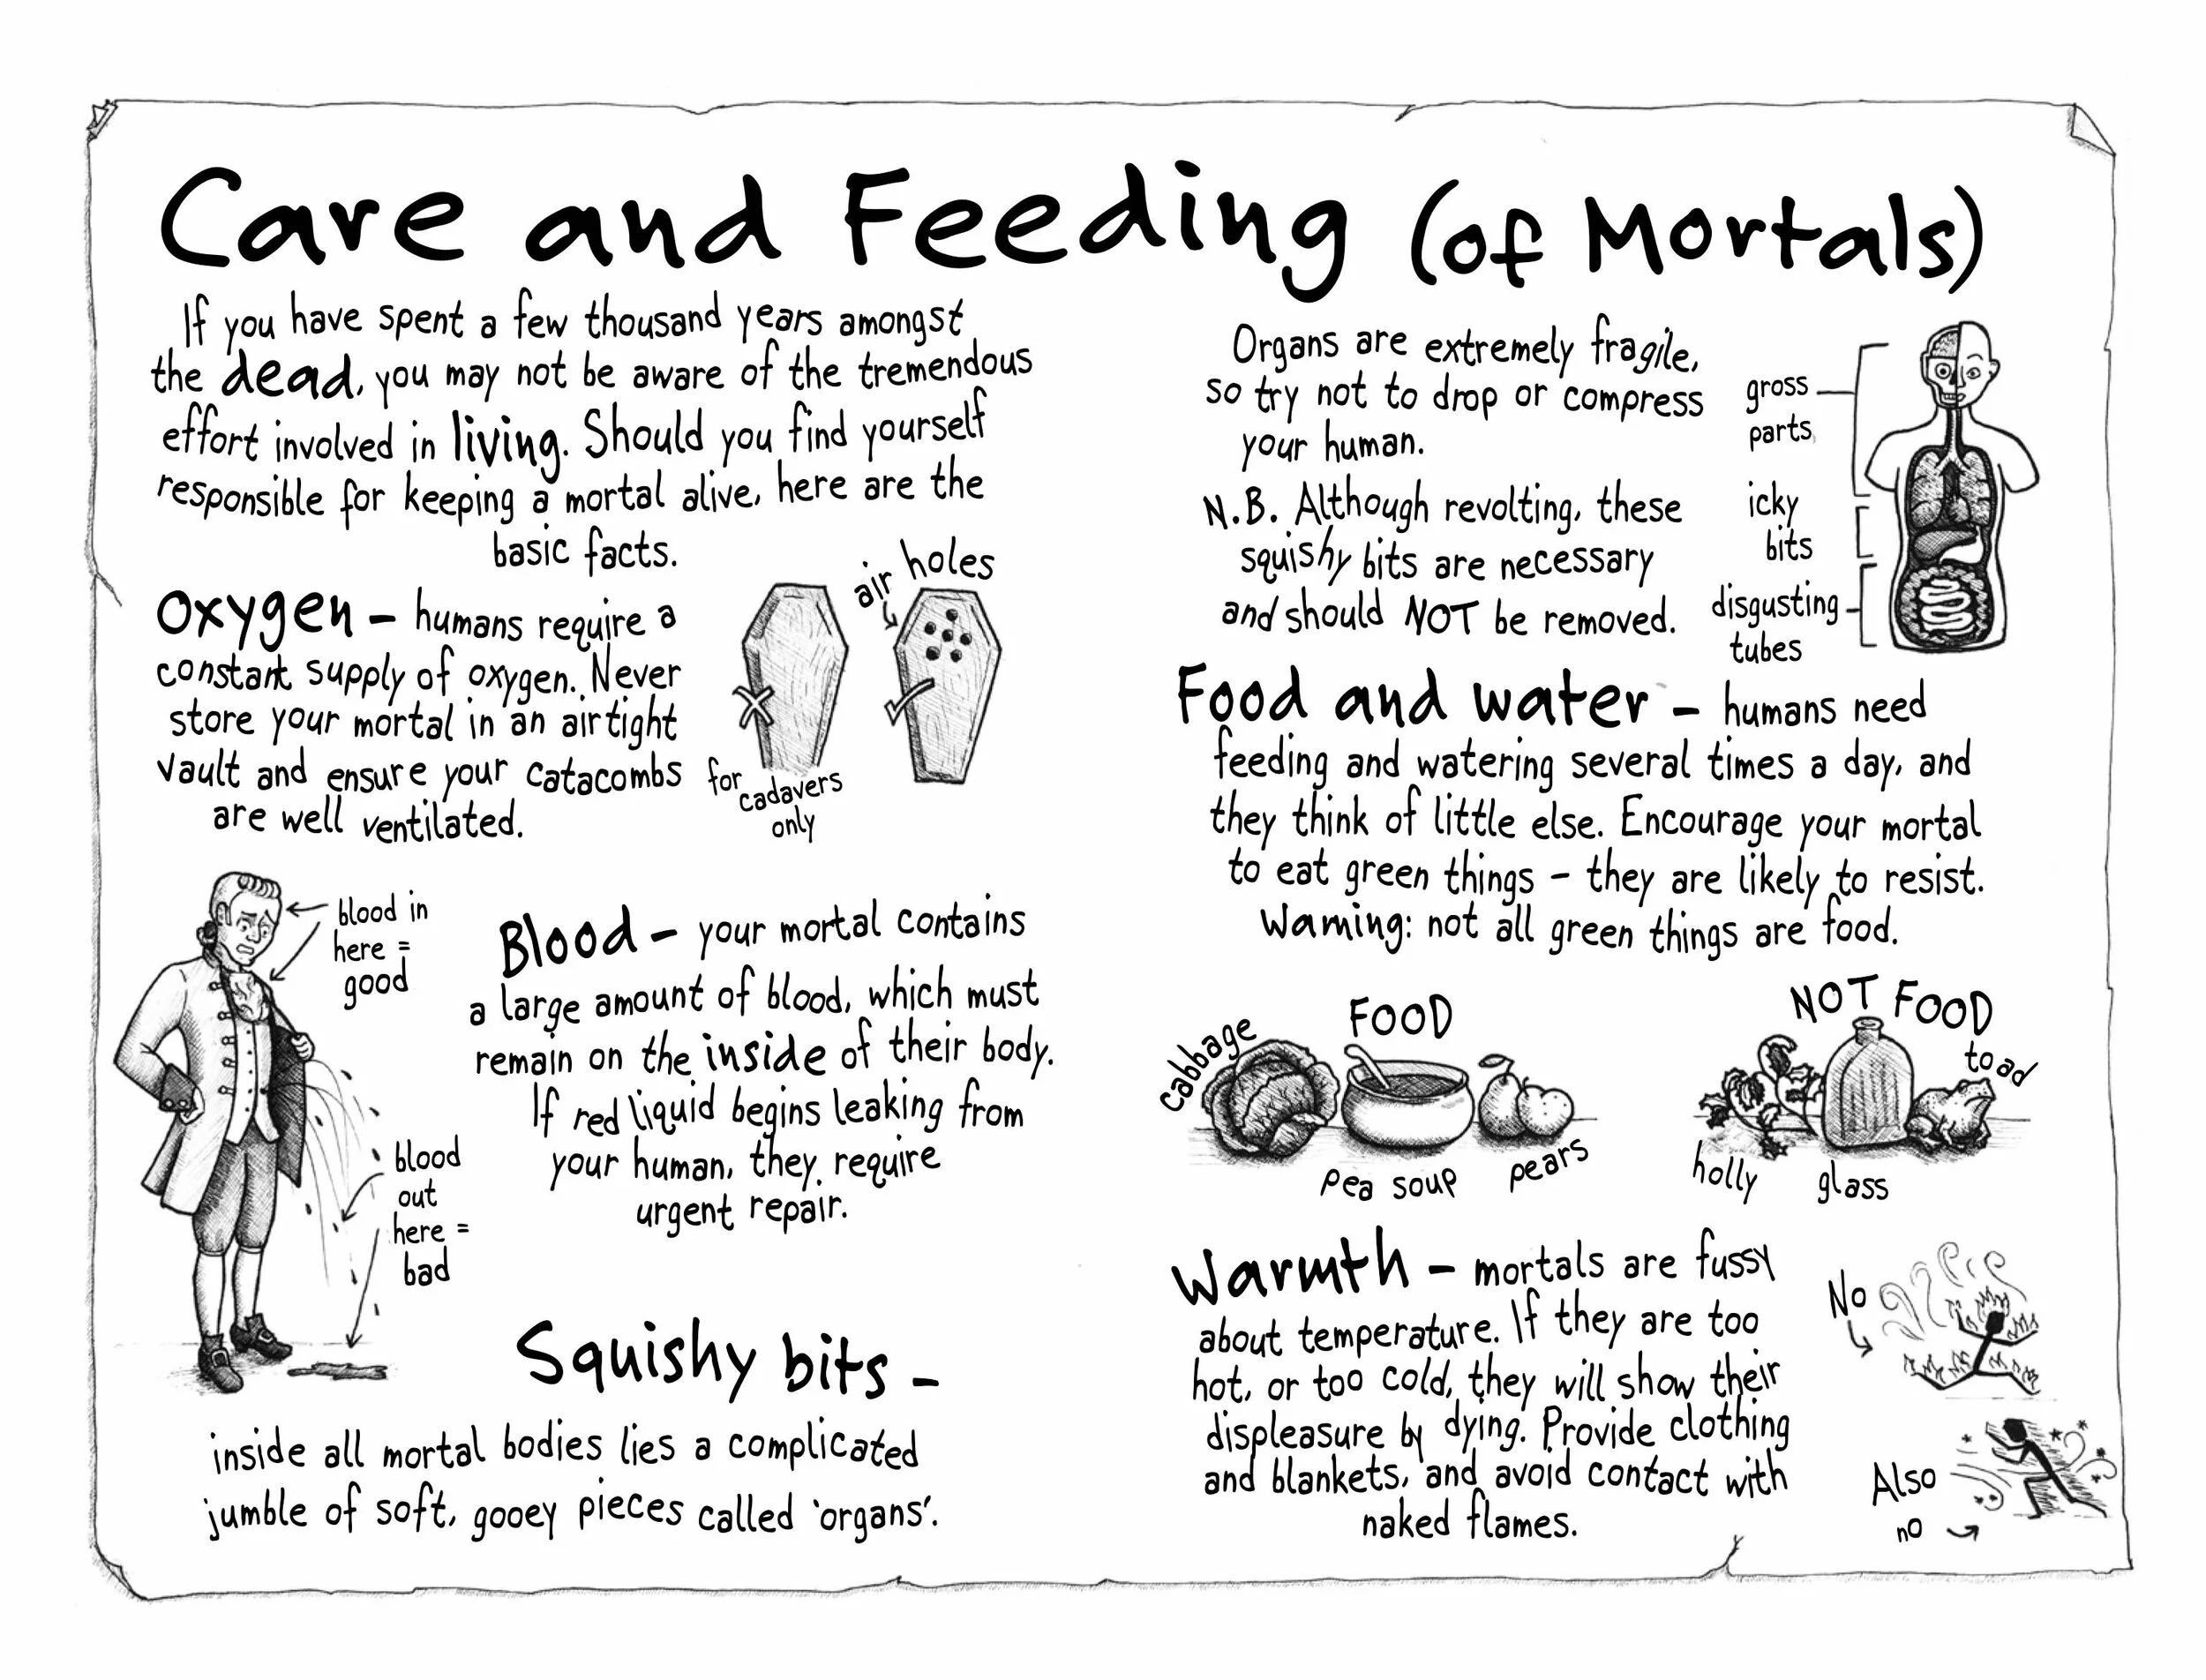 Care and Feeding (of Mortals)
If you have spent a few thousand years amongst
the dead, you may not be aware of the tremendous
effort involved in living. Should you find yourself
responsible for keeping a mortal alive, here are the
basic facts.
Oxygen – humans require a
constant supply of oxygen. Never
store your mortal in an airtight
vault and ensure your catacombs
are well ventilated.
air holes
for
cadavers
only
blood in
here =
good
blood
out
here =
bad
Blood – your mortal contains
a large amount of blood, which must
remain on the inside of their body.
If red liquid begins leaking from
your human, they require
urgent repair.
Squishy bits –
inside all mortal bodies lies a complicated
jumble of soft, gooey pieces called 'organs'.
Organs are extremely fragile,
so try not to drop or compress
your human.
N.B. Although revolting, these
squishy bits are necessary
and should NOT be removed.
gross
parts
icky
bits
disgusting
tubes
Food and water – humans need
feeding and watering several times a day, and
they think of little else. Encourage your mortal
to eat green things – they are likely to resist.
Warning: not all green things are food.
FOOD
cabbage
pea soup
pears
NOT FOOD
toad
holly
glass
Warmth – mortals are fussy
about temperature. If they are too
hot, or too cold, they will show their
displeasure by dying. Provide clothing
and blankets, and avoid contact with
naked flames.
No
Also
no